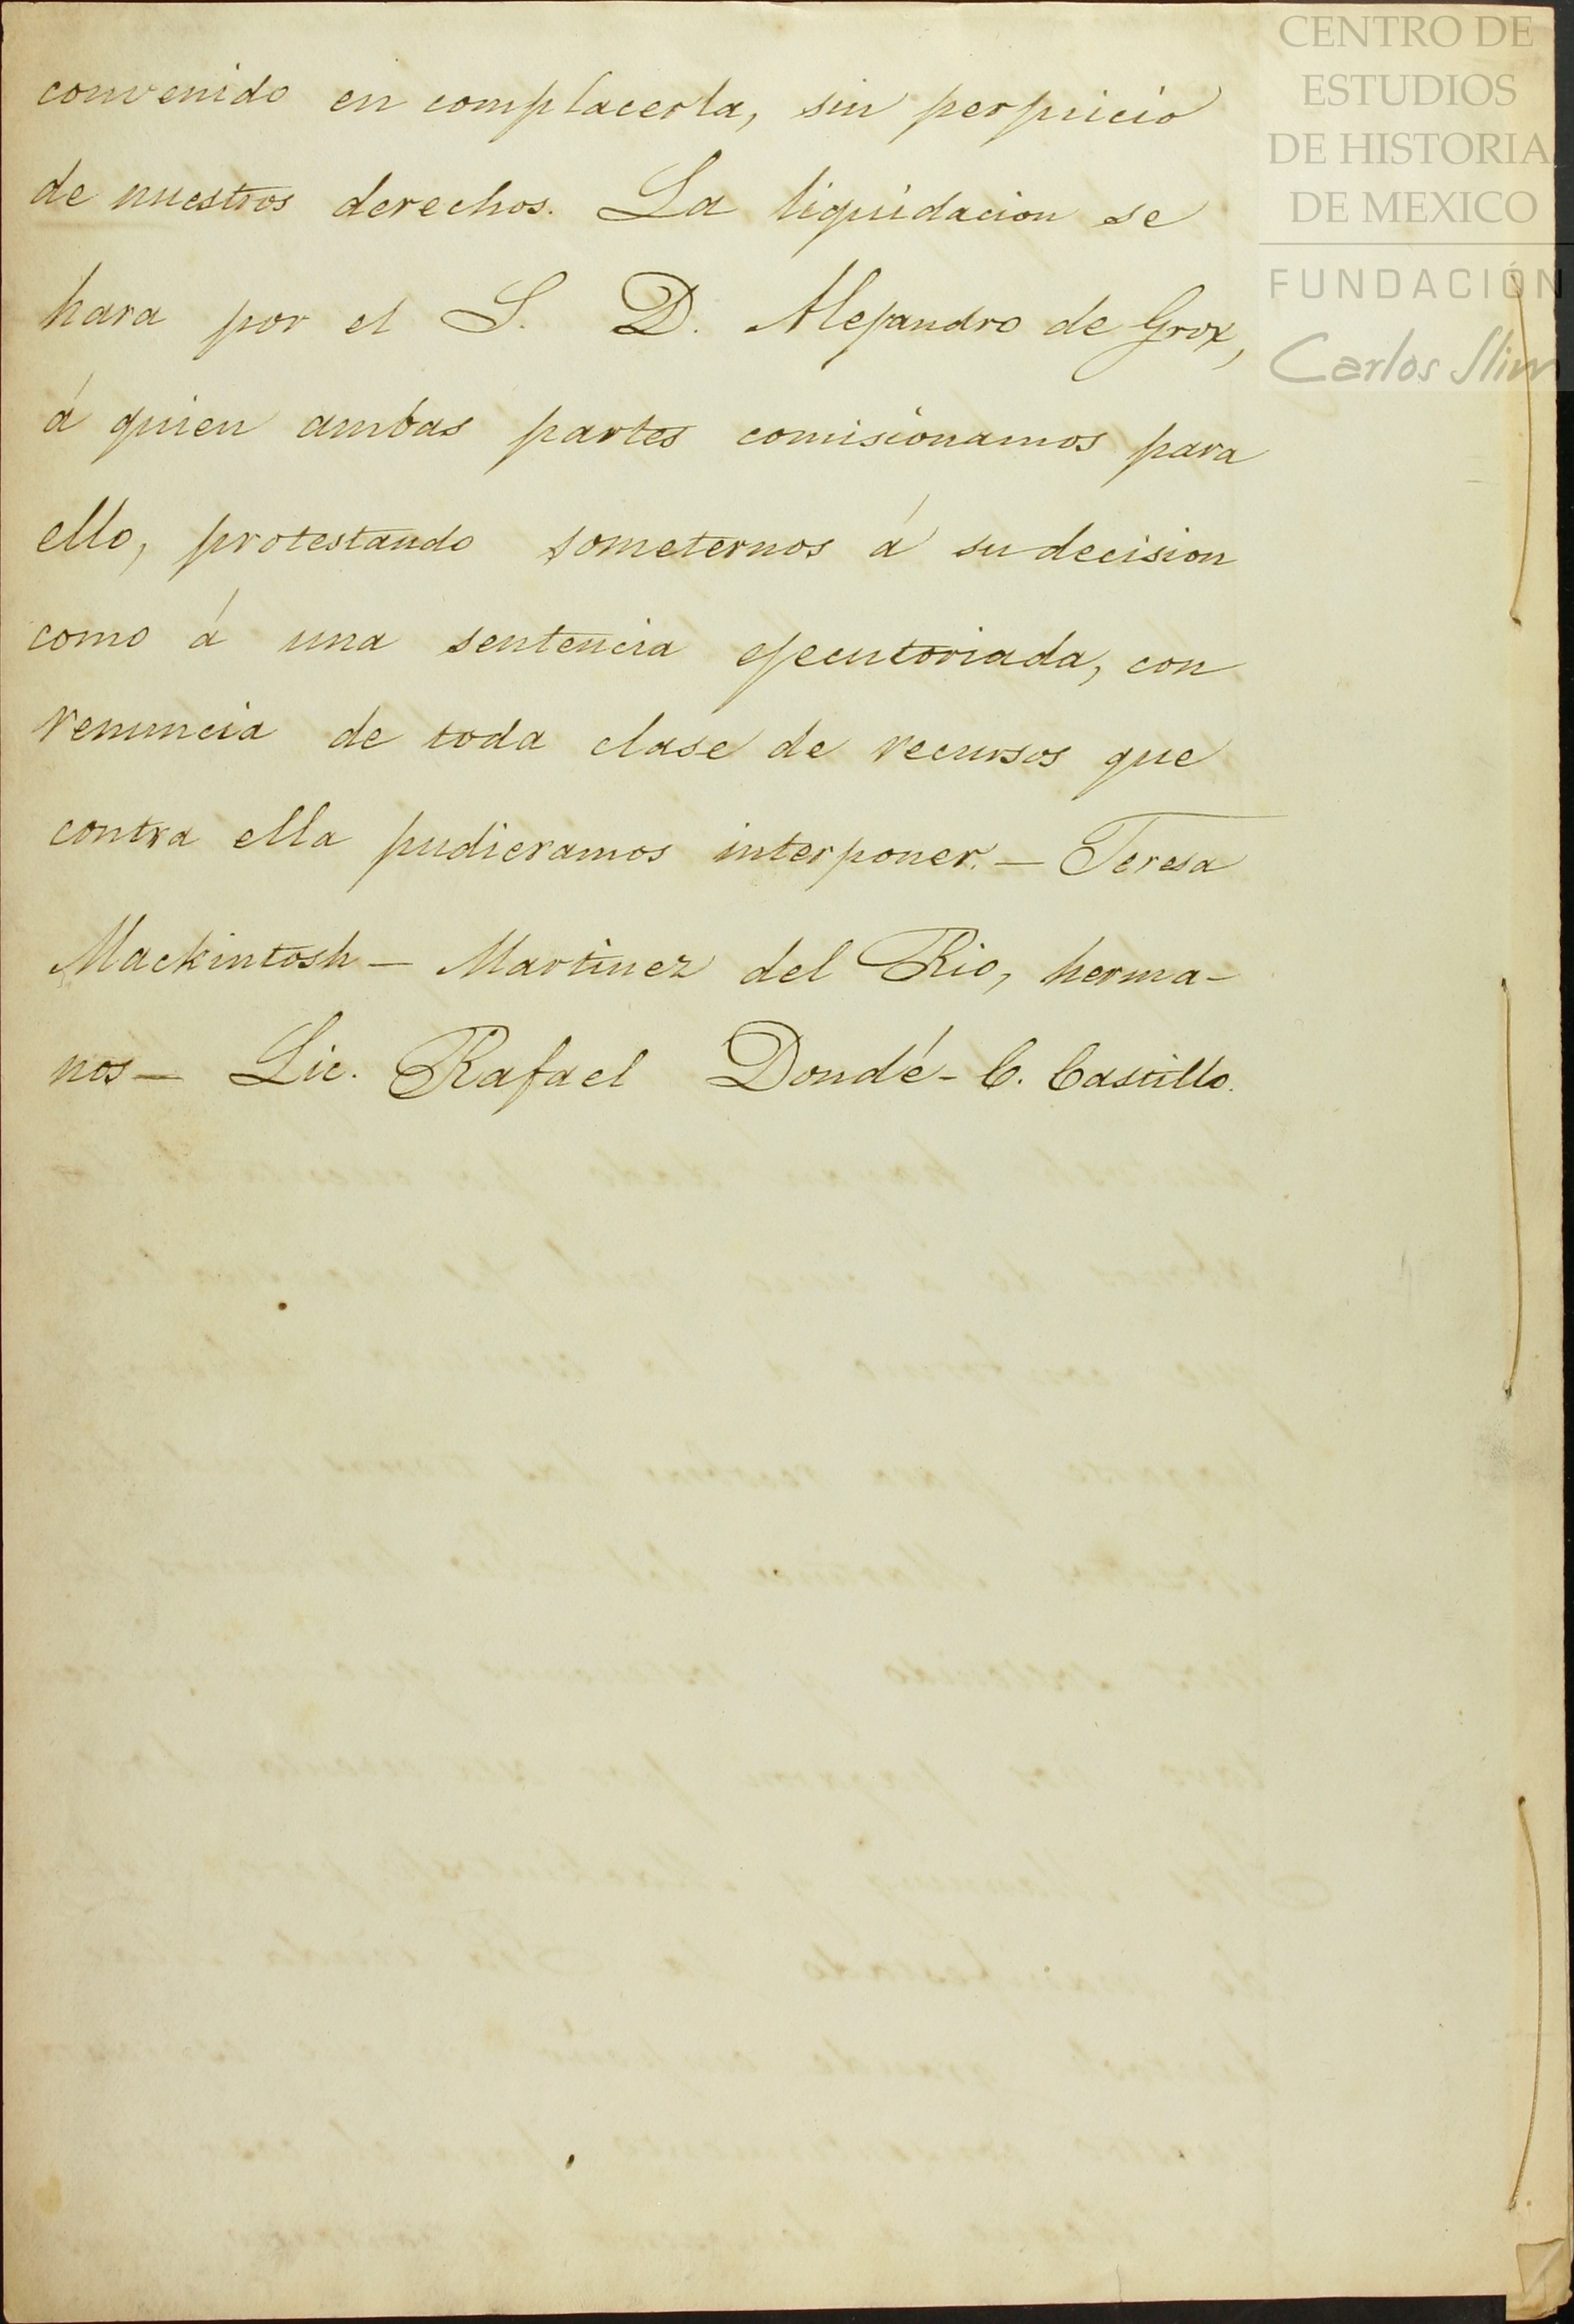 CENTRO DE
ESTUDIOS
DE HISTORIA
DE MEXICO
FUNDACIÓN
Carlos Slim
convenido en complacerla, sin perjuicio
de nuestros derechos. La liquidacion se
hara por el S. D. Alejandro de Grox,
á quien ambas partes comisionamos para
ello, protestando someternos á su decision
como á una sentencia ejecutoriada, con
renuncia de toda clase de recursos que
contra ella pudieramos interponer. — Teresa
Mackintosh — Martinez del Rio, herma-
nos — Lic. Rafael Dondé - C. Castillo.